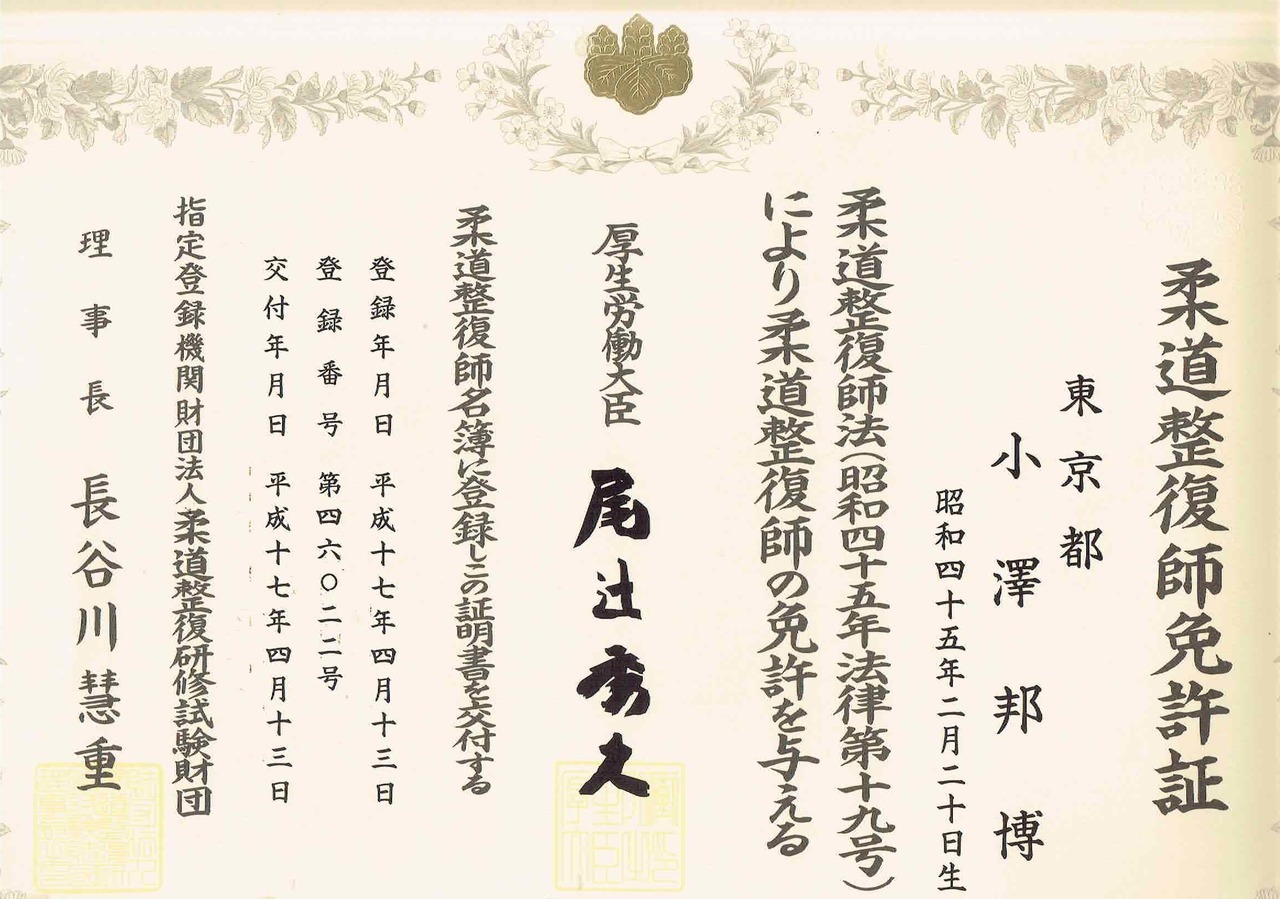 柔道整復師免許証
東京都
小澤邦博
昭和四十五年二月二十日生
柔道整復師法(昭和四十五年法律第十九号)
により柔道整復師の免許を与える
厚生労働大臣 尾辻秀久
柔道整復師名簿に登録しこの証明書を交付する
登録年月日 平成十七年四月十三日
登録番号 第四六〇二二号
交付年月日 平成十七年四月十三日
指定登録機関財団法人柔道整復研修試験財団
理事長 長谷川慧重